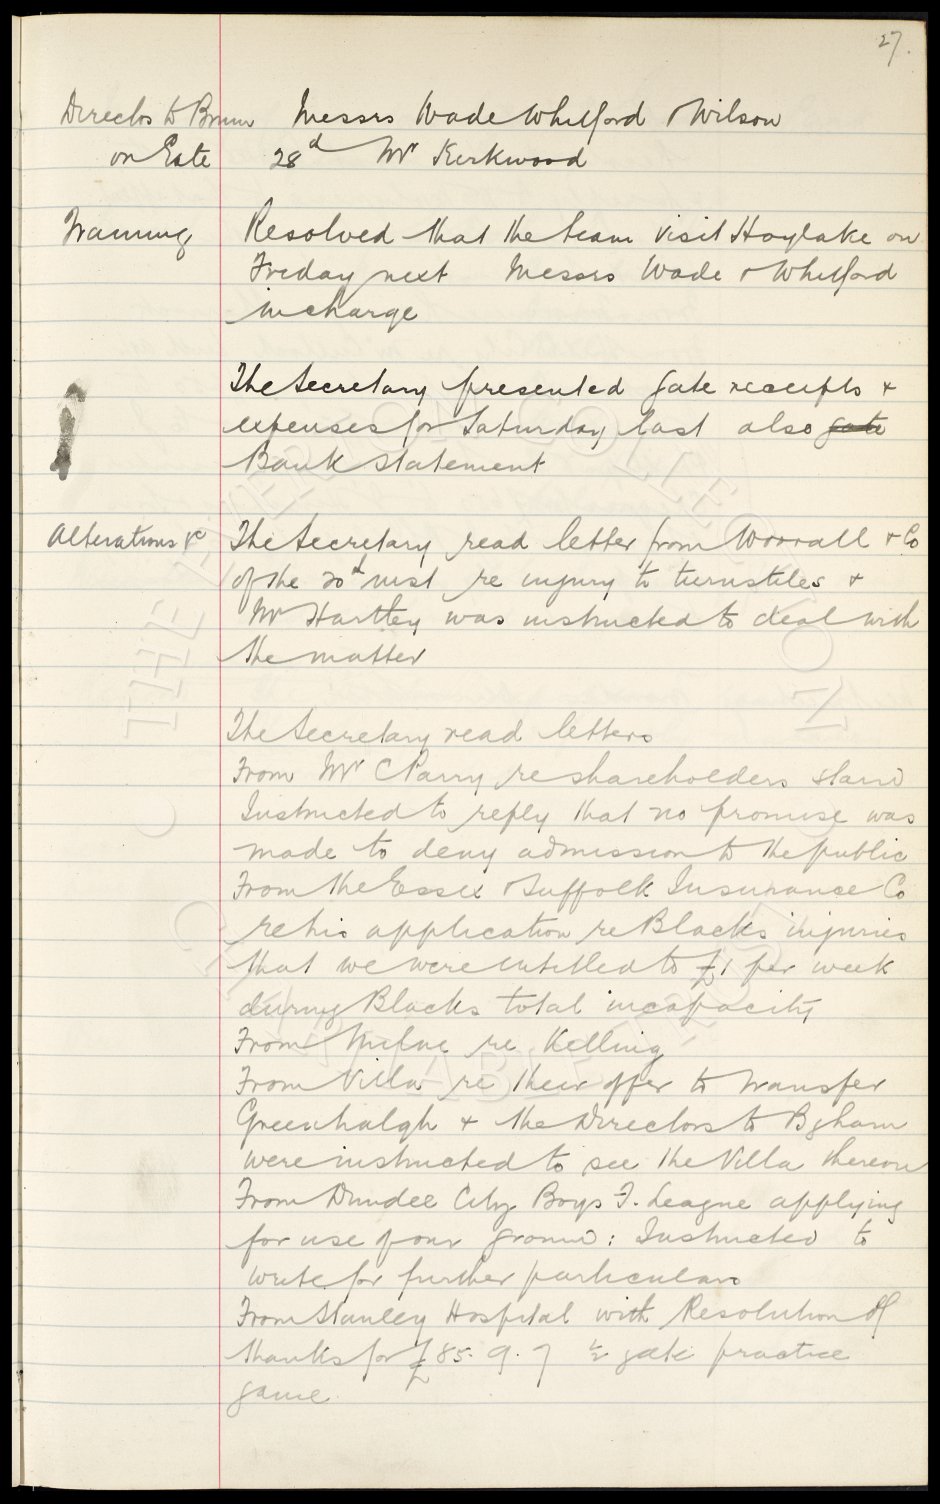 27.
Directors to B'ham Messrs Wade Whitford & Wilson
on Gate 28d Mr Kirkwood
Training Resolved that the team visit Hoylake on
Friday next Messrs Wade & Whitford
in charge
The Secretary presented gate receipts &
expenses for Saturday last also gate
Bank statement
Alterations &c The Secretary read letter from Worrall & Co
of the 20th inst re injury to turnstiles &
Mr Hartley was instructed to deal with
the matter
The Secretary read letters
From Mr C Parry re shareholders stand
Instructed to reply that no promise was
made to deny admission to the public
From the Essex & Suffolk Insurance Co
re his application re Blacks injuries
that we were entitled to £1 per week
during Blacks total incapacity
From Milne re Kelling
From Villa re their offer to transfer
Greenhalgh & the Directors to B'gham
were instructed to see the Villa thereon
From Dundee City Boys F. League applying
for use of our ground: Instructed to
write for further particulars
From Stanley Hospital with Resolution of
thanks for £85. 9. 7 ½ gate practice
game.
THE EVERTON COLLECTION
CHARITABLE TRUST